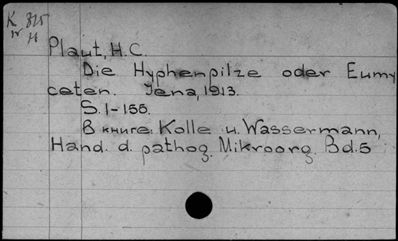 K 815
Plaut, H.C.
Die Hyphenpilze oder Eumy
ceten. Jena, 1913.
S. 1-155.
В книге: Kolle u. Wassermann,
Hand. d. pathog. Mikroorg. Bd. 5